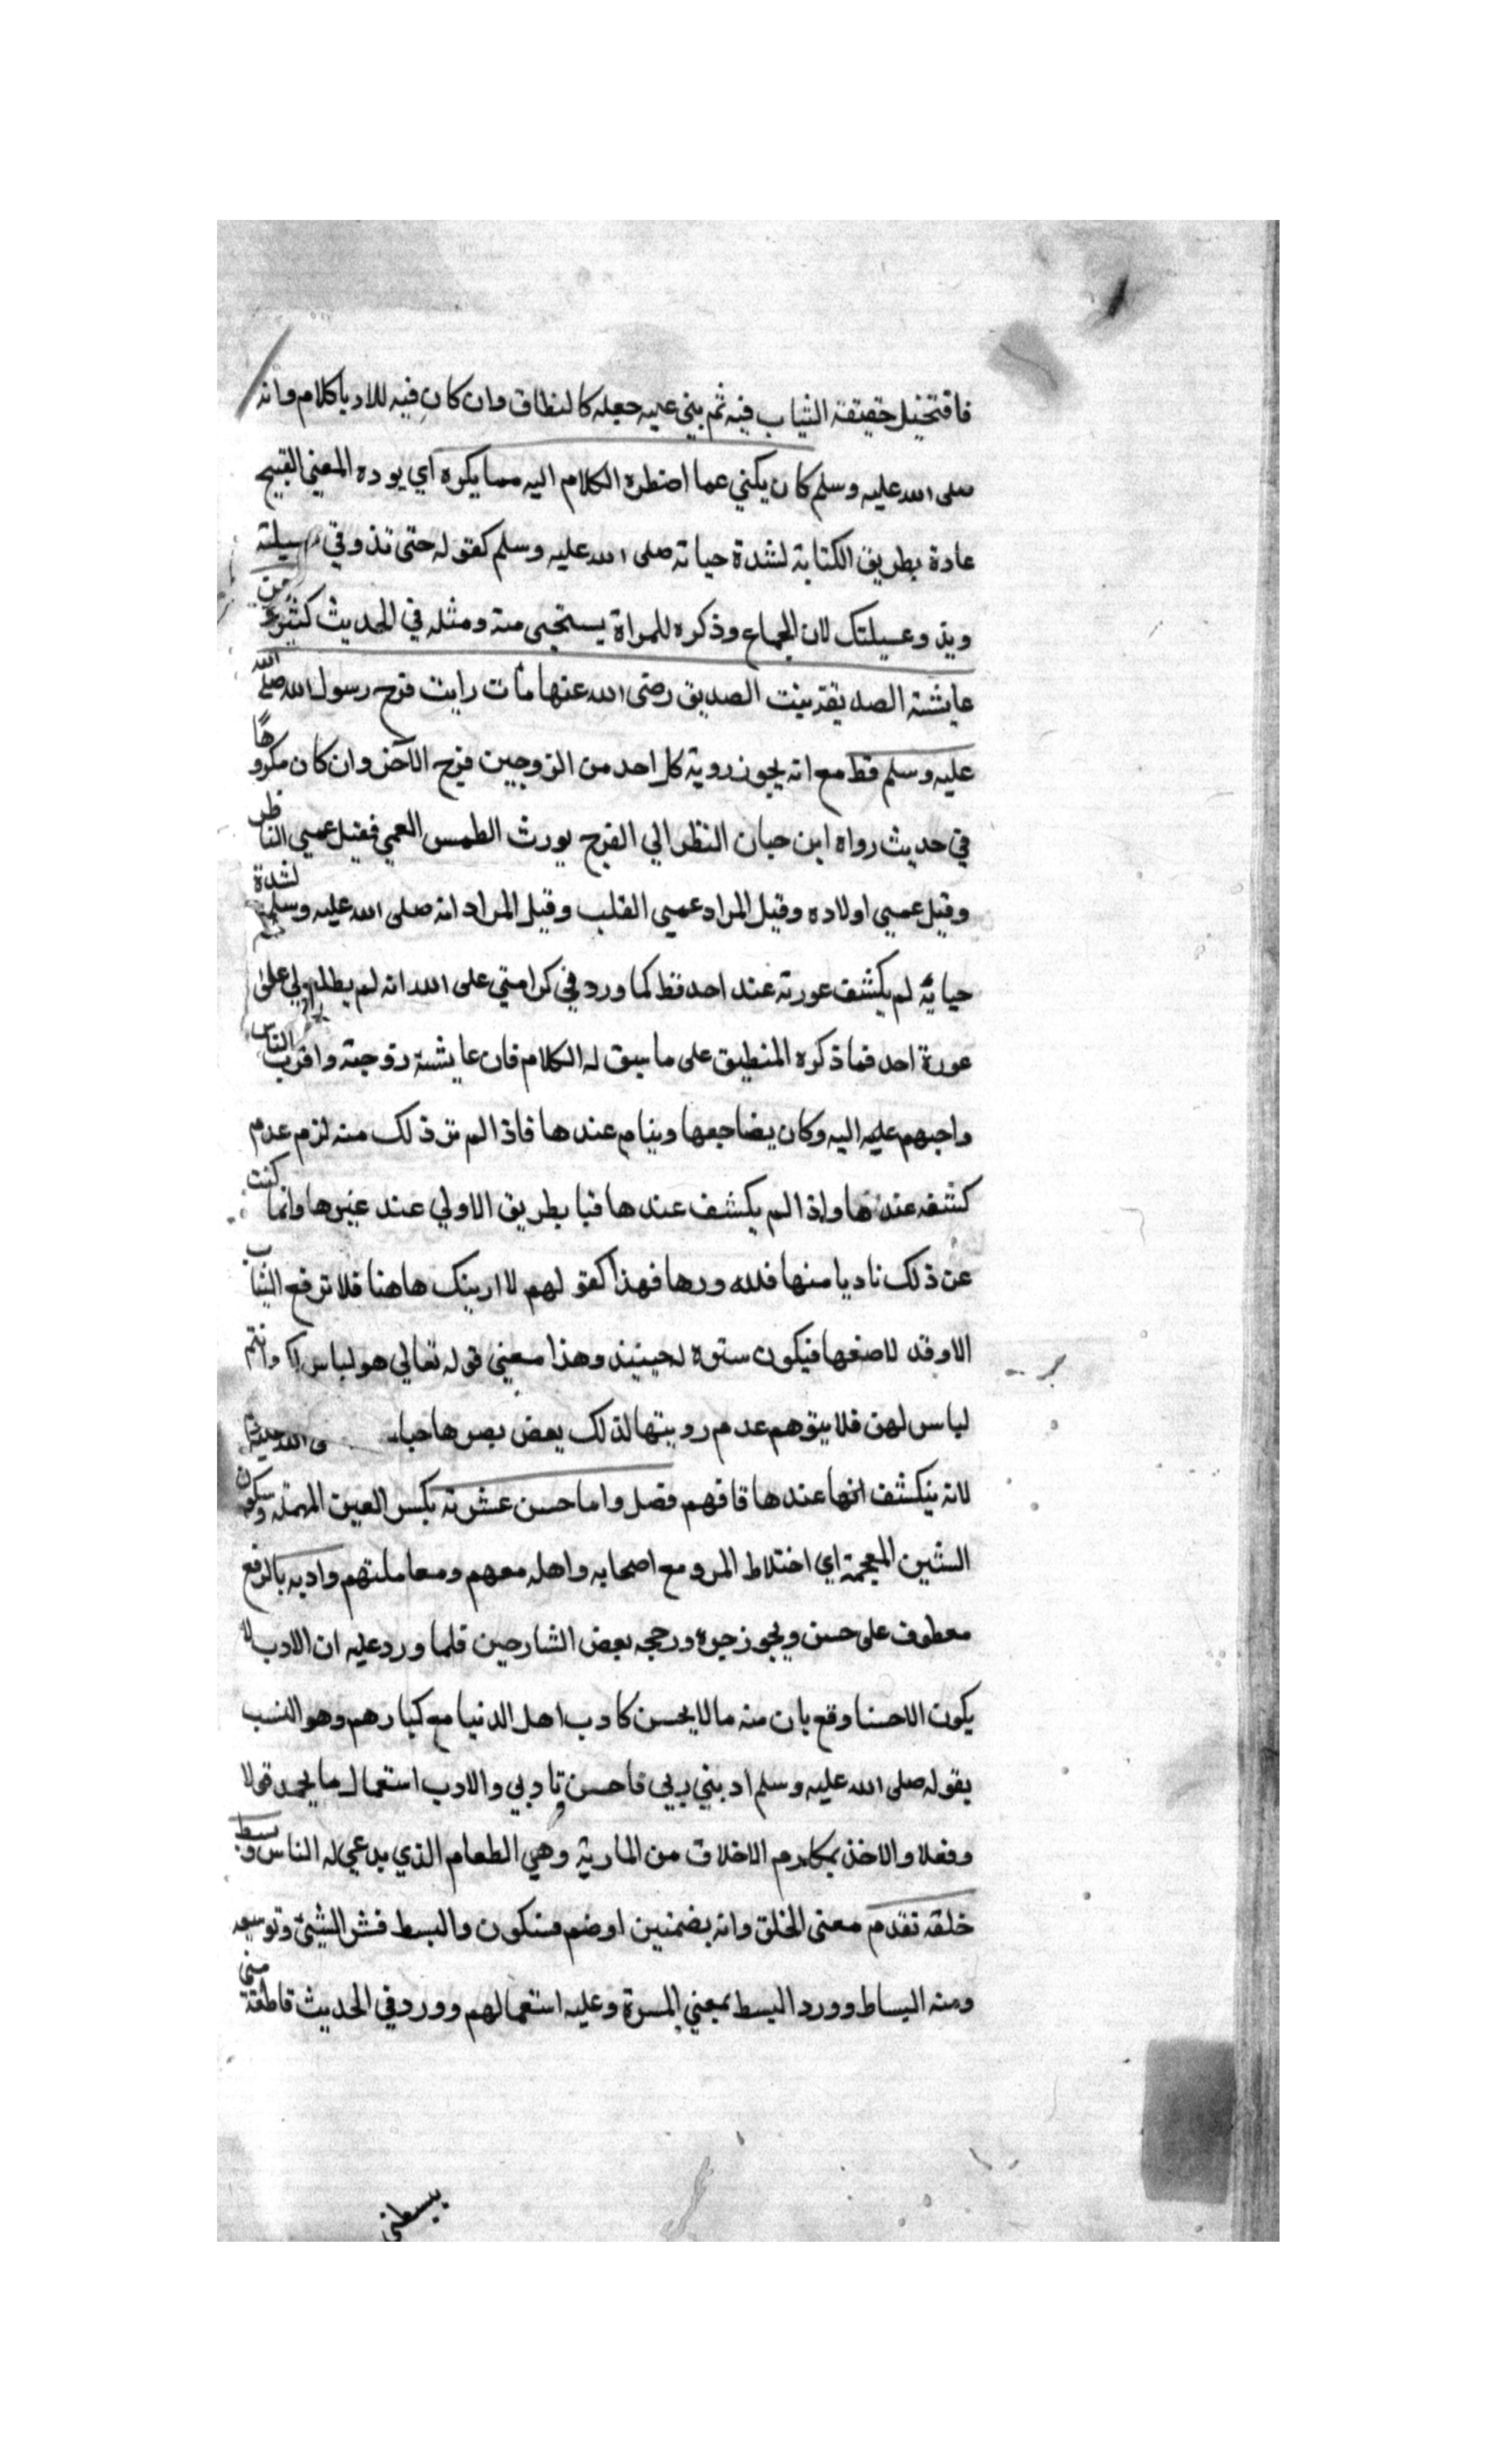 فاقتخيل حقيقة الثياب فيه ثم بني عليه جعله كالنطاق وان كان فيه للادبا كلام وانه
صلى الله عليه وسلم كان يكني عما اضطره الكلام اليه مما يكره اي يوده المعني القبيح
عادة بطريق الكتابة لشدة حياته صلى الله عليه وسلم كقوله حتى تذوقي عسيلته
ويذوعسيلتك لان الجماع وذكره للمراة يستحيى منه ومثله في الحديث كثير وعن
عايشة الصديقة بنت الصديق رضى الله عنها مات رايت فرج رسول الله صلى الله
عليه وسلم قط مع انه يجوز روية كل احد من الزوجين فرج الآخر وان كان مكروها
في حديث رواه ابن حبان النظر الي الفرج يورث الطمس العمي فقيل عمي الناظر
وقيل عمي اولاده وقيل المراد عمي القلب وقيل المراد انه صلى الله عليه وسلم لشدة
حيايه لم يكشف عورته عند احد قط كما ورد في كرامتي على الله انه لم يطلع لي على
عورة احد فما ذكره المنطبق على ما سيق له الكلام فان عايشة زوجته واقرب الناس
واحبهم عليه اليه وكان يضاجعها وينام عندها فاذا لم تر ذلك منه لزم عدم
كشفه عندها واذا لم يكشف عندها فبا بطريق الاولي عند غيرها وانما كنت
عن ذلك تاديا منها فلله ورها فهذا كقولهم لا ارينك هاهنا فلا ترفع الثياب
الا وقد لاصقها فيكون ستره لحينيذ وهذا معني قوله تعالي هو لباس لكم وانتم
لباس لهن فلا يتوهم عدم رويتها لذلك بعض بصرها حياء
لانه ينكشف انها عندها فافهم فصل واما حسن عشرته بكسر العين المهملة وسكون
الشين المعجمة اي اختلاط المرو مع اصحابه واهله معهم ومعاملتهم وادبه بالرفع
معطوف على حسن ويجوز جره ورجحه بعض الشارحين فلما ورد عليه ان الادب لا
يكون الاحسنا وقع بان منه ما لا يحسن كادب اهل الدنيا مع كبارهم وهو النسب
بقوله صلى الله عليه وسلم ادبني ربي فاحسن تاديبي والادب استعمال ما يحمد قولا
وفعلا والاخذ بمكارم الاخلاق من المادبة وهي الطعام الذي يدعي له الناس وبسط
خلقه تقدم معنى الخلق وانه بضمتين او ضم فسكون والبسط نشر الشئ وتوسيعه
ومنه البساط وورد البسط بمعني المسرة وعليه استعمالهم وورد في الحديث فاطمة مني
يبسطني